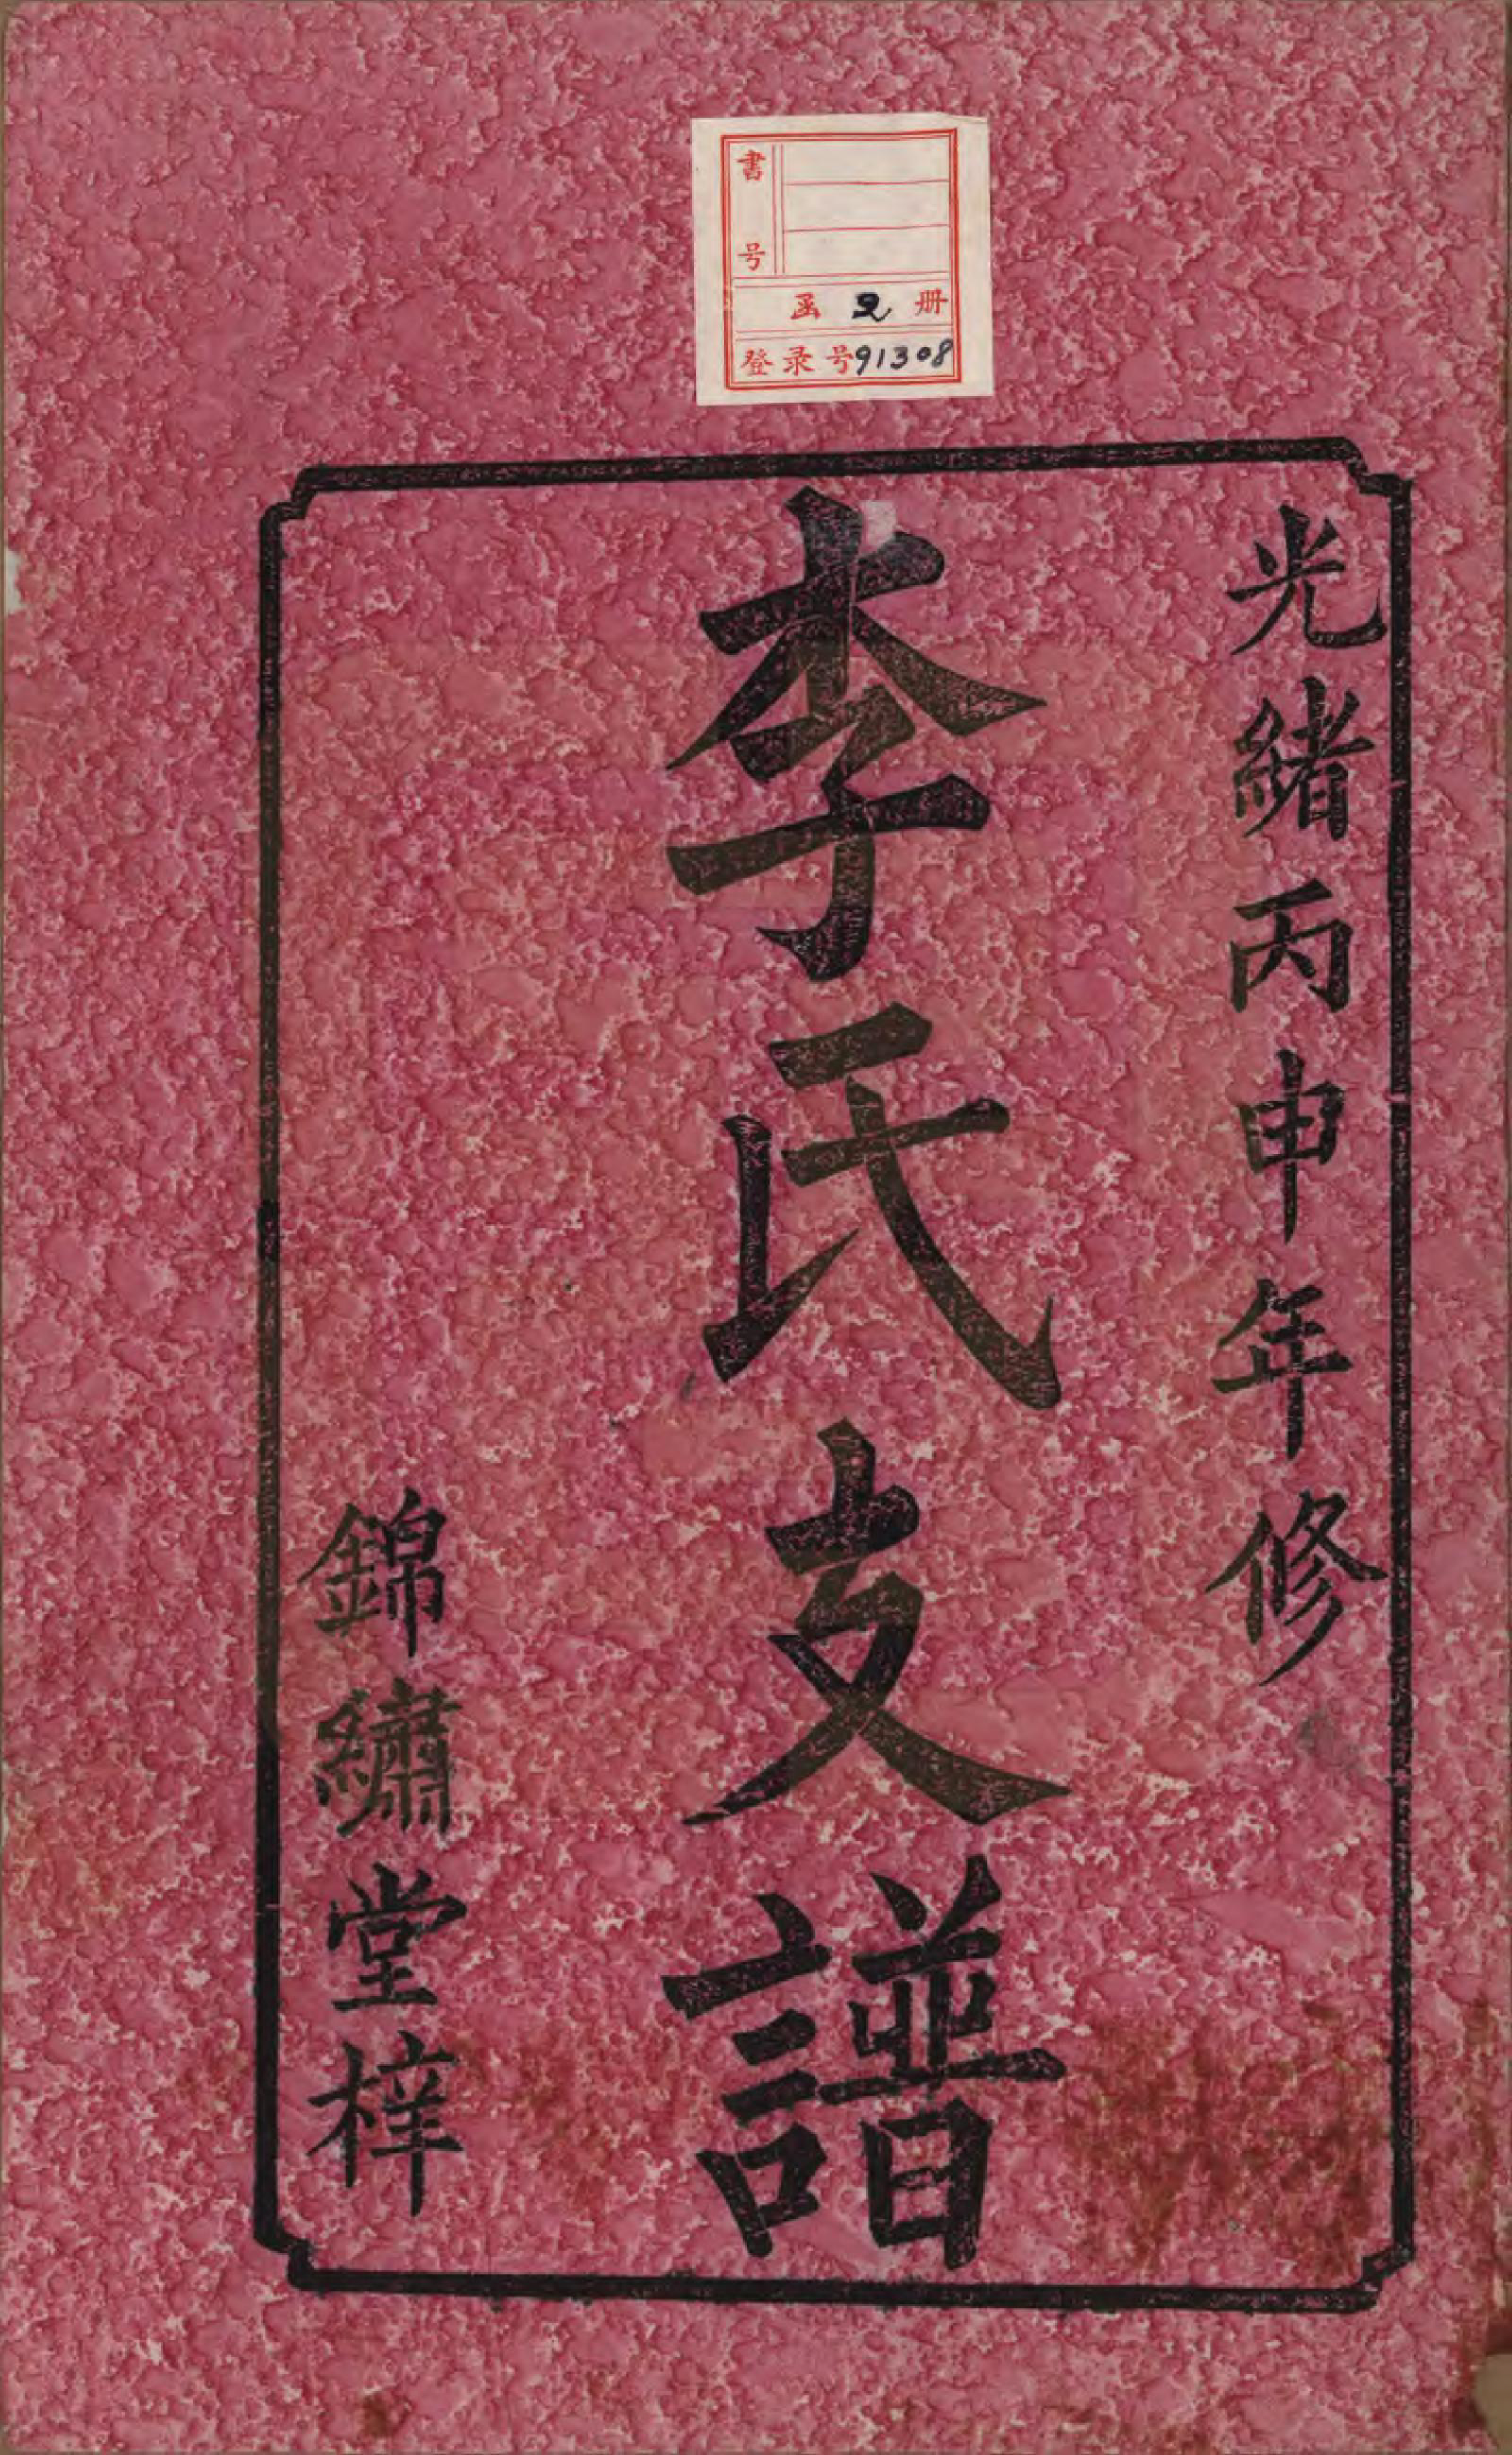 書号
函 2 册
登录号91308
光緒丙申年修
李氏支譜
錦繡堂梓